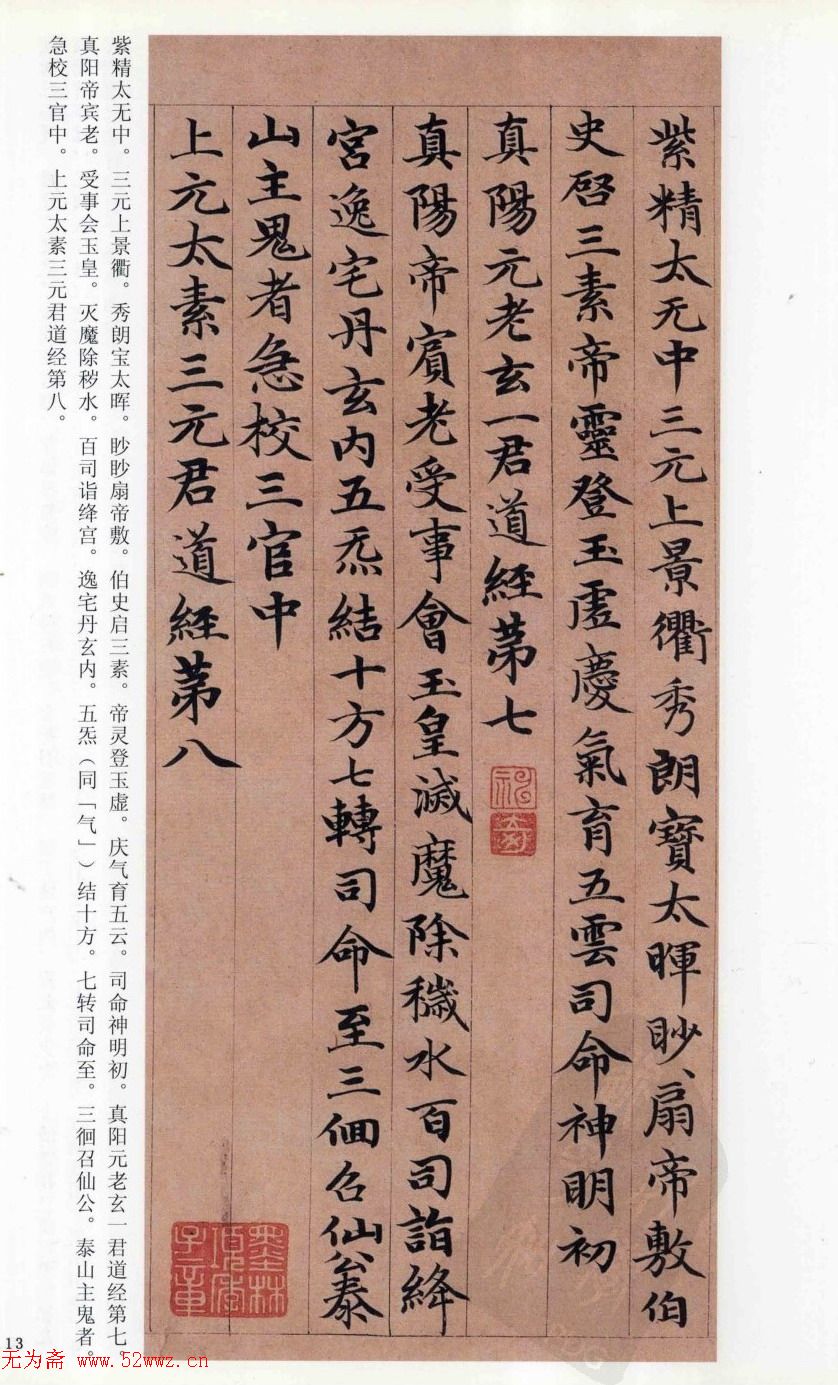 紫精太无中三元上景衢秀朗寶太暉眇〻扇帝敷伯
史啓三素帝靈登玉虛慶氣育五雲司命神明初
真陽元老玄一君道經第七
真陽帝賓老受事會玉皇滅魔除穢水百司詣絳
宮逸宅丹玄内五炁結十方七轉司命至三徊召仙公泰
山主鬼者急校三官中
上元太素三元君道經第八
紫精太无中。三元上景衢。秀朗宝太晖。眇眇扇帝敷。伯史启三素。帝灵登玉虚。庆气育五云。司命神明初。真阳元老玄一君道经第七。
真阳帝宾老。受事会玉皇。灭魔除秽水。百司诣绛宫。逸宅丹玄内。五炁（同「气」）结十方。七转司命至。三徊召仙公。泰山主鬼者。
急校三官中。上元太素三元君道经第八。
13
无为斋 www.52wwz.cn